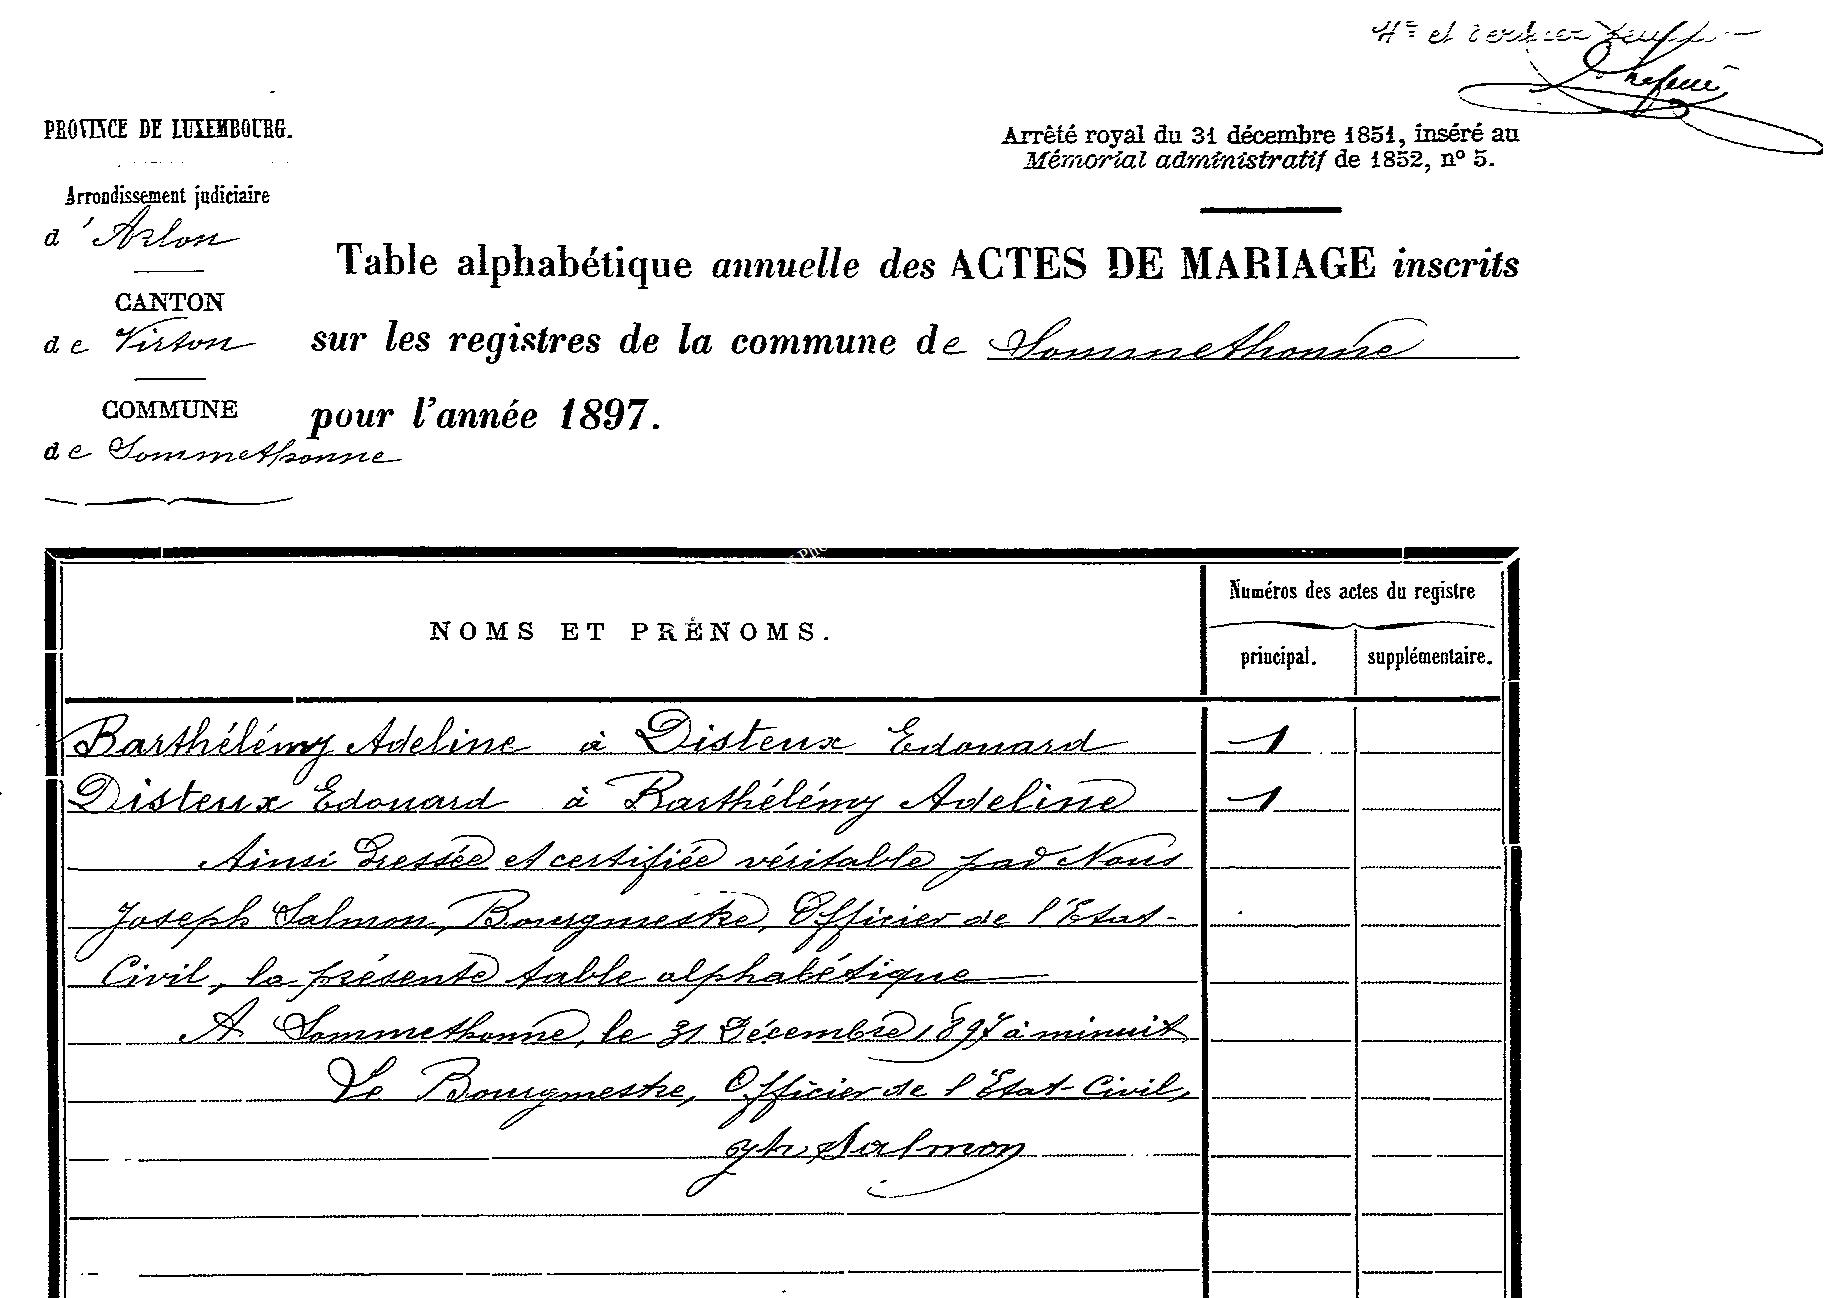 4e et dernier feuillet
PROVINCE DE LUXEMBOURG.
Arrêté royal du 31 décembre 1851, inséré au
Mémorial administratif de 1852, nº 5.
Arrondissement judiciaire
d'Arlon
CANTON
de Virton
COMMUNE
de Sommethonne
Table alphabétique annuelle des ACTES DE MARIAGE inscrits
sur les registres de la commune de Sommethonne
pour l'année 1897.
NOMS ET PRÉNOMS.
Numéros des actes du registre
principal. supplémentaire.
Barthélémy Adeline à Disteux Edouard 1
Disteux Edouard à Barthélémy Adeline 1
Ainsi Dressée et certifiée véritable par Nous
Joseph Salmon, Bourgmestre, Officier de l'Etat-
Civil, la présente table alphabétique
A Sommethonne, le 31 Décembre 1897 à minuit
Le Bourgmestre, Officier de l'Etat-Civil,
Jph Salmon